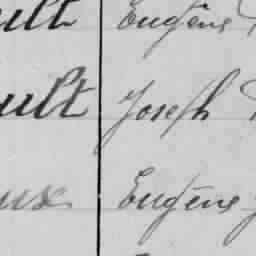 ult Eugène
ult Joseph
ux Eugène